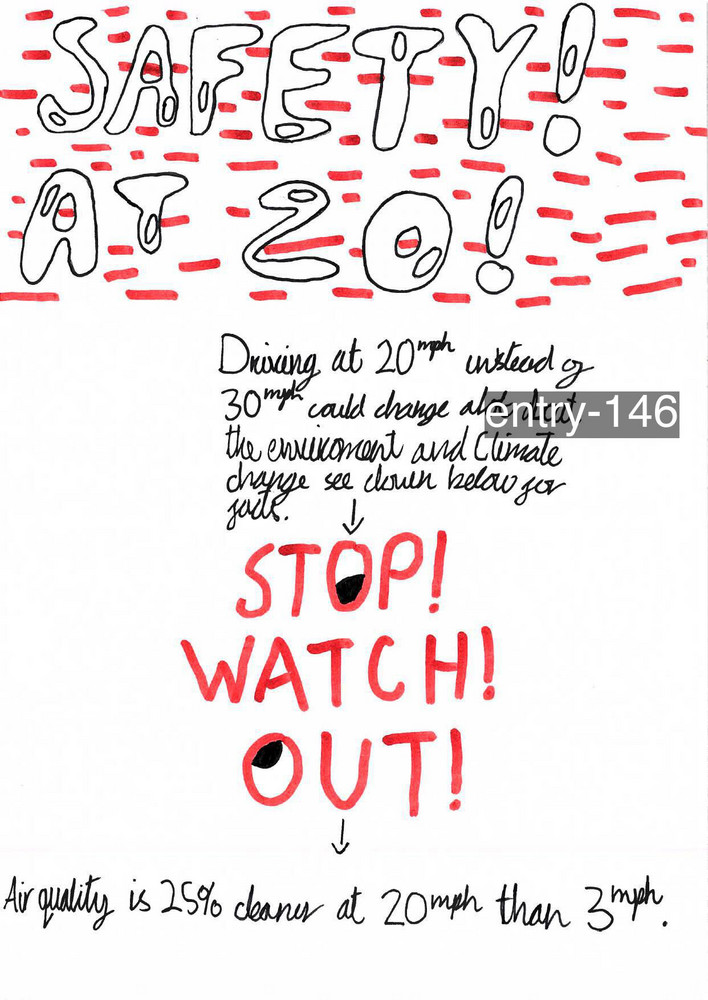 SAFETY!
AT 20!
Driving at 20mph instead of
30mph could change alot
entry-146
the enviroment and Climate
change see down below for
facts.
STOP!
WATCH!
OUT!
Air quality is 25% cleaner at 20mph than 3mph.